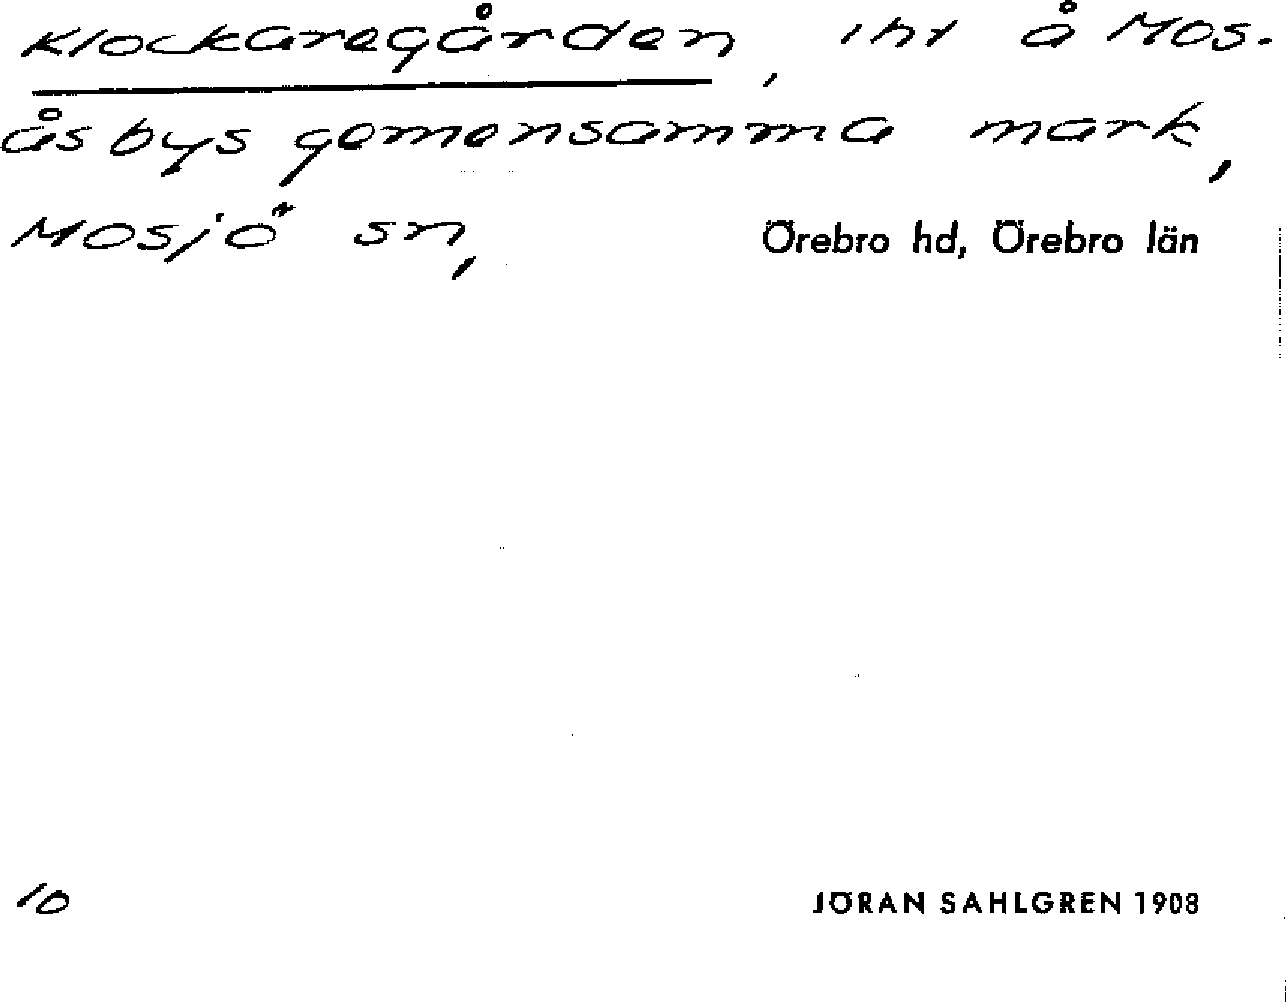 Klockaregården, iht å Mos-
ås bys gemensamma mark,
Mosjö sn, Örebro hd, Örebro län
10 JÖRAN SAHLGREN 1908